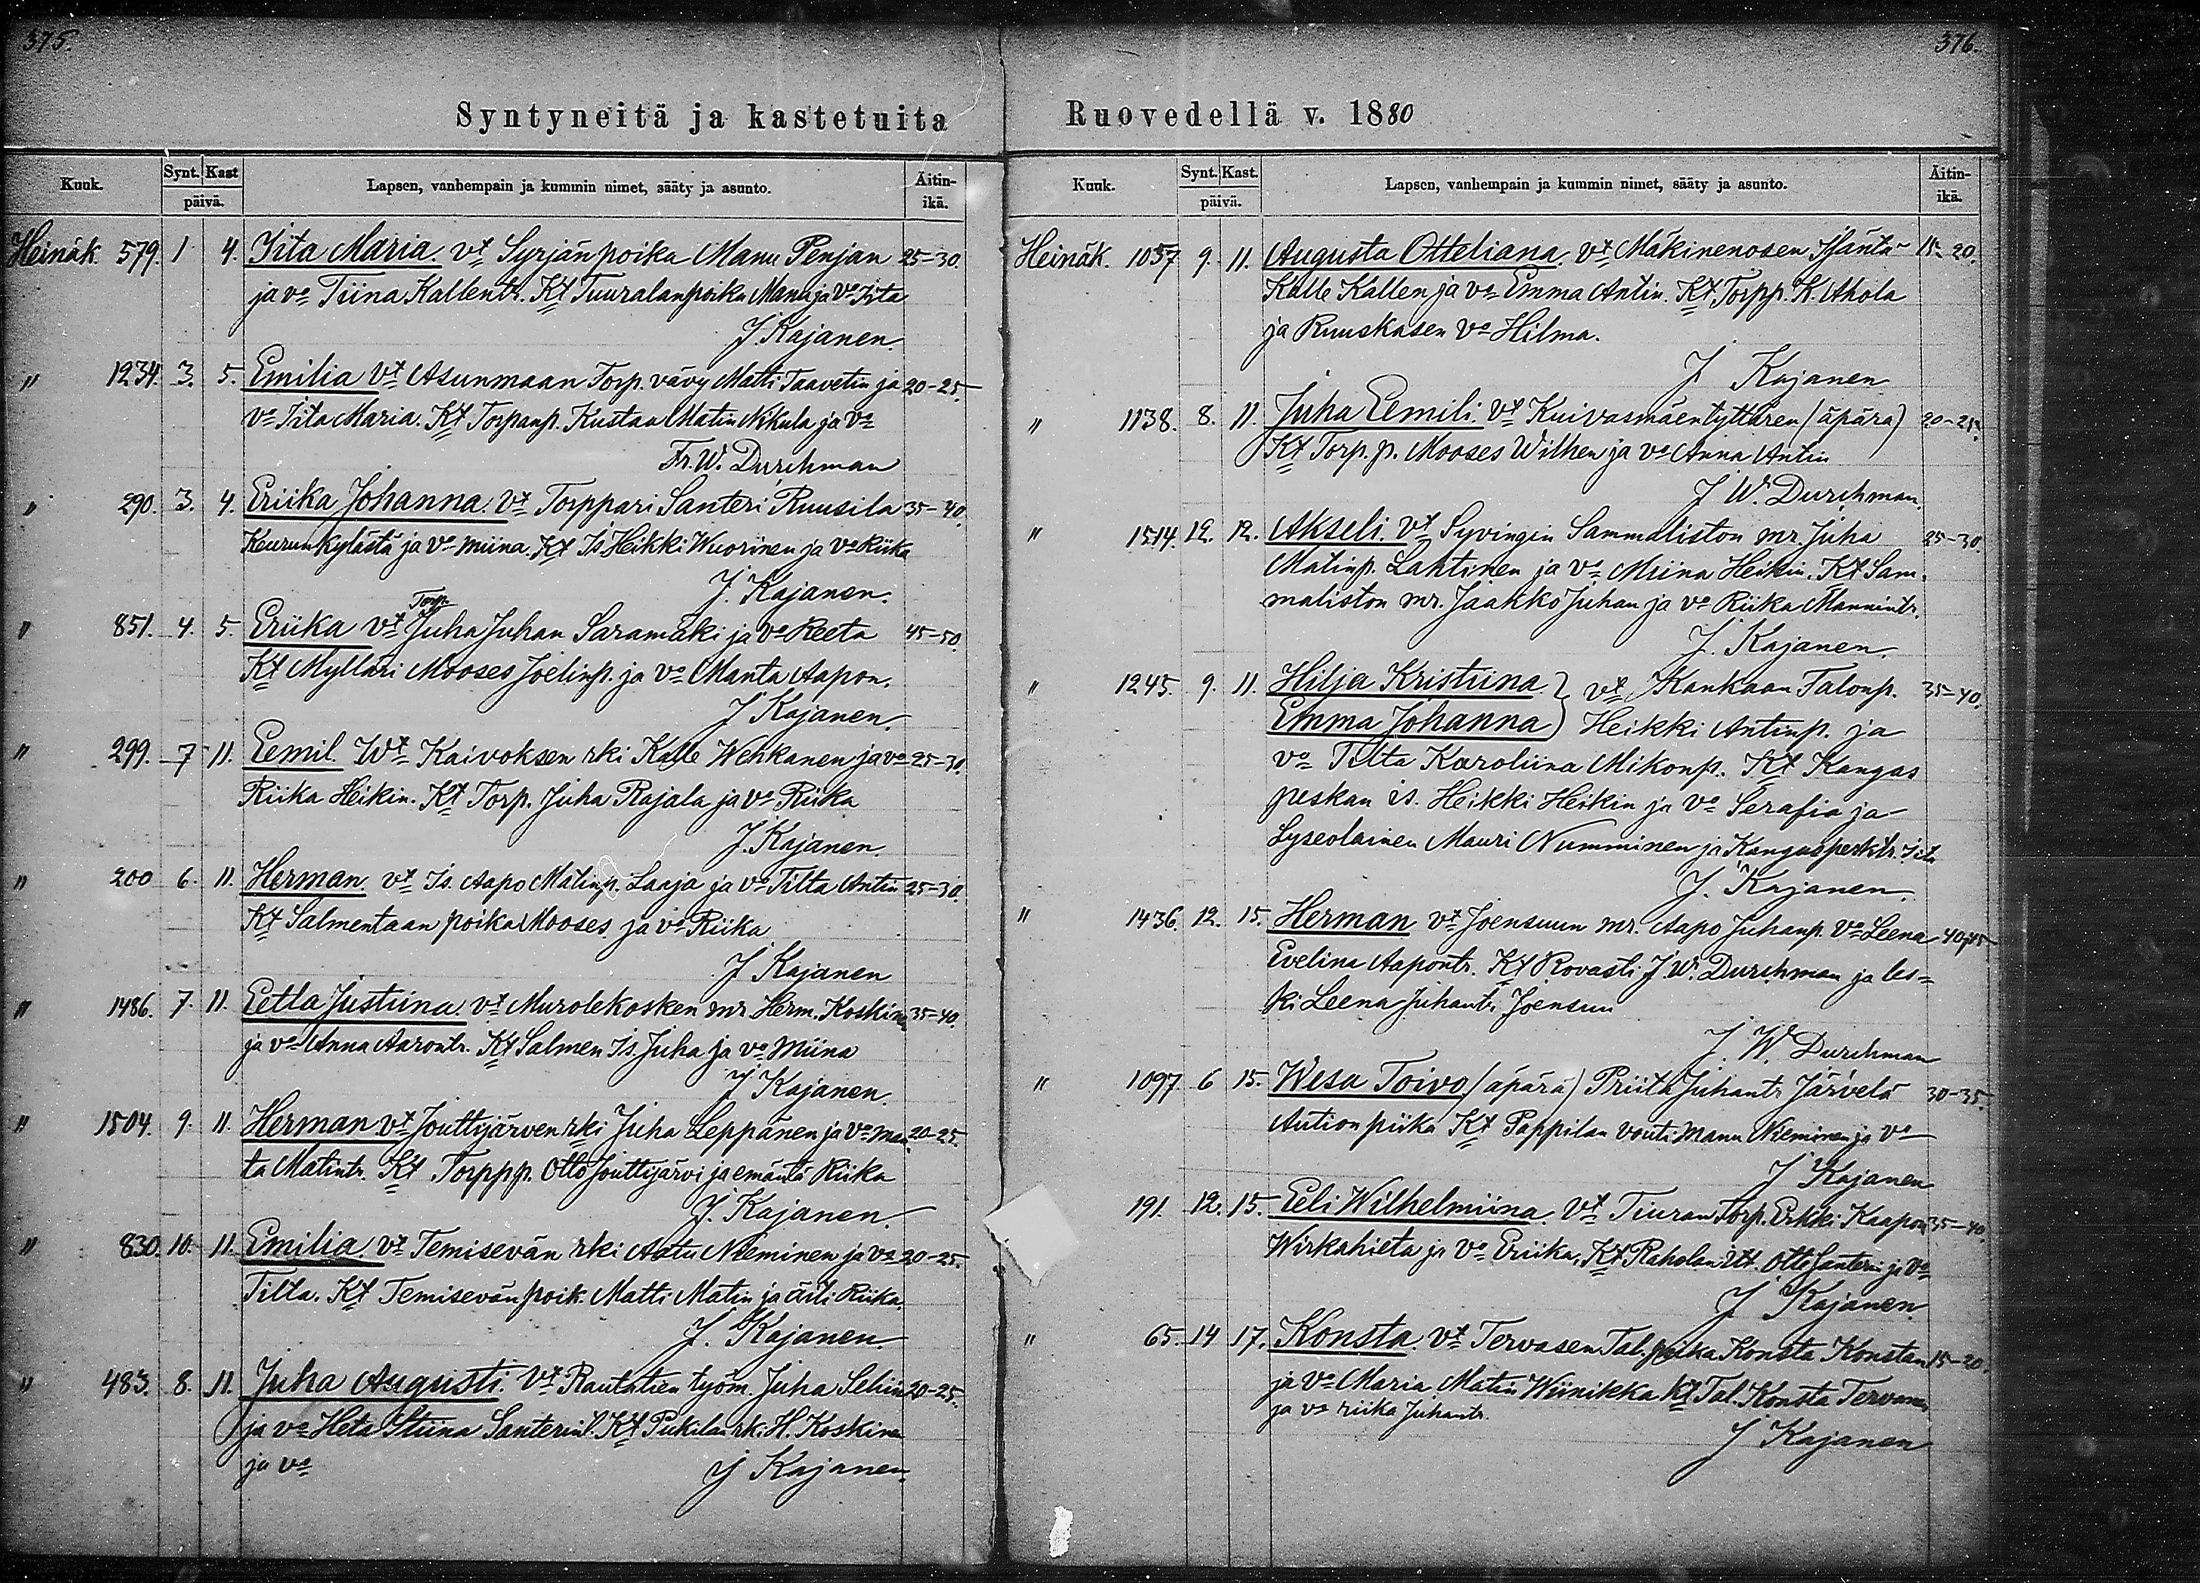 375.
Syntyneitä ja kastetuita
Kuuk. Synt. Kast päivä. Lapsen, vanhempain ja kummin nimet, sääty ja asunto. Äitin-ikä.
Heinäk. 579. 1 4. Iita Maria. vt Syrjän poika Manu Penjan 25-30.
ja vo Tiina Kallentr. Kt Tuuralanpoika Manu ja vo Iita
J. Kajanen.
" 1234. 3. 5. Emilia vt Asunmaan Torp. vävy Matti Taavetin ja 20-25
vo Iita Maria. Kt Torpanp. Kustaa Matin Nikula ja vo
Fr. W. Durchman
" 290. 3. 4. Eriika Johanna. vt Torppari Santeri Ruusila 35-40.
Keurunkylästä ja vo Miina. Kt Is. Heikki Wuorinen ja vo Riika
J. Kajanen.
" 851. 4. 5. Eriika vt Torp. Juha Juhan Saramäki ja vo Reeta 45-50.
Kt Mylläri Mooses Joelinp. ja vo Manta Aapon.
J Kajanen.
" 299. 7 11. Eemil. Wt Kaivoksen rki Kalle Wehkanen ja vo 25-30.
Riika Heikin. Kt Torp. Juha Rajala ja vo Riika
J. Kajanen.
" 200 6. 11. Herman. vt Is. Aapo Matinp. Laaja ja vo Tilta Antin 25-30.
Kt Salmentaan poika Mooses ja vo Riika
J Kajanen
" 1486. 7. 11. Eetla Justiina. vt Murolekosken mr. Herm. Koskinen 35-40.
ja vo Anna Aarontr. Kt Salmen Is. Juha ja vo Miina
J Kajanen.
" 1504. 9. 11. Herman vt Jouttijärven rki Juha Leppänen ja vo Man- 20-25.
ta Matintr. Kt Torppp. Otto Jouttijärvi ja emäntä Riika
J. Kajanen.
" 830. 10. 11. Emilia vt Temisevän rki Aatu Nieminen ja vo 20-25.
Tilta. Kt Temisevän poik. Matti Matin ja äiti Riika.
J. Kajanen.
" 483. 8. 11. Juha Augusti. vt Rautatien työm. Juha Selin 20-25.
ja vo Heta Stiina Santerint. Kt Pukilan rki H. Koskinen
ja vo J Kajanen.
376.
Ruovedellä v. 1880
Kuuk. Synt. Kast. päivä. Lapsen, vanhempain ja kummin nimet, sääty ja asunto. Äitin-ikä.
Heinäk. 1057 9. 11. Augusta Otteliana. vt Mäkinenosen Isäntä 15-20.
Kalle Kallen ja vo Emma Antin. Kt Torpp. K. Ahola
ja Ruuskasen vo Hilma.
J Kajanen
" 1138. 8. 11. Juha Eemili. vt Kuivasmäentyttären (äpärä) 20-25.
Kt Torp. p. Mooses Wilhen ja vo Anna Antin
J W. Durchman.
" 1514. 12. 12. Akseli. vt Syvingin Sammaliston mr. Juha 25-30.
Matinp. Lahtinen ja vo Miina Heikin. Kt Sam-
maliston mr. Jaakko Juhan ja vo Riika Mannintr.
J. Kajanen.
" 1245. 9. 11. Hilja Kristiina } vt Kankaan Talonp. 35-40.
Emma Johanna } Heikki Antinp. ja
vo Tilta Karoliina Mikonp. Kt Kangas
peskan is. Heikki Heikin ja vo Serafia ja
Lyseolainen Mauri Numminen ja Kangaspesktr. Iita
J. Kajanen.
" 1436. 12. 15. Herman vt Joensuun mr. Aapo Juhanp. vo Leena 40-45
Evelina Aapontr. Kt Rovasti J. W. Durchman ja les-
ki Leena Juhantr. Joensuu
J. W. Durchman
" 1097 6 15. Wesa Toivo (äpärä) Priita Juhantr. Järvelä 30-35.
Aution piika Kt Pappilan vouti Manu Nieminen ja vo
J Kajanen
191. 12. 15. Eeli Wilhelmiina. vt Tuuran Torp. Erkki Kaapon 35-40.
Wirkahieta ja vo Eriika. Kt Raholan Otto Santerin ja vo
J Kajanen.
" 65. 14 17. Konsta. vt Tervasen Tal. poika Konsta Konstan 15-20.
ja vo Maria Matin Wiinikka Kt Tal. Konsta Tervanen
ja vo riika Juhantr.
J Kajanen